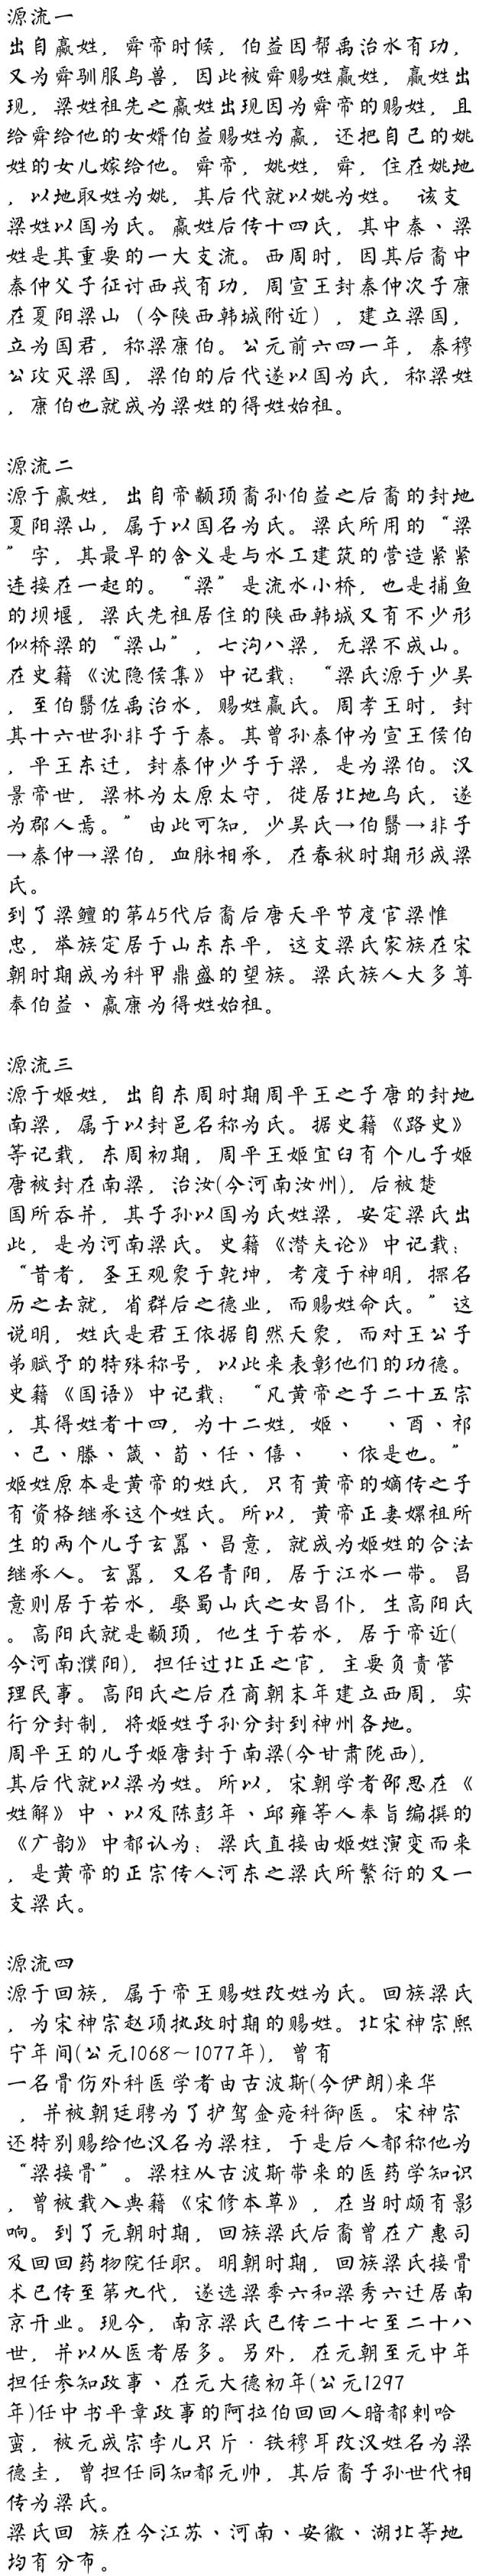 源流一
出自嬴姓，舜帝时候，伯益因帮禹治水有功，
又为舜驯服鸟兽，因此被舜赐姓嬴姓，嬴姓出
现，梁姓祖先之嬴姓出现因为舜帝的赐姓，且
给舜给他的女婿伯益赐姓为嬴，还把自己的姚
姓的女儿嫁给他。舜帝，姚姓，舜，住在姚地
，以地取姓为姚，其后代就以姚为姓。 该支
梁姓以国为氏。嬴姓后传十四氏，其中秦、梁
姓是其重要的一大支流。西周时，因其后裔中
秦仲父子征讨西戎有功，周宣王封秦仲次子康
在夏阳梁山（今陕西韩城附近），建立梁国，
立为国君，称梁康伯。公元前六四一年，秦穆
公攻灭梁国，梁伯的后代遂以国为氏，称梁姓
，康伯也就成为梁姓的得姓始祖。
源流二
源于嬴姓，出自帝颛顼裔孙伯益之后裔的封地
夏阳梁山，属于以国名为氏。梁氏所用的“梁
”字，其最早的含义是与水工建筑的营造紧紧
连接在一起的。“梁”是流水小桥，也是捕鱼
的坝堰，梁氏先祖居住的陕西韩城又有不少形
似桥梁的“梁山”，七沟八梁，无梁不成山。
在史籍《沈隐侯集》中记载：“梁氏源于少昊
，至伯翳佐禹治水，赐姓嬴氏。周孝王时，封
其十六世孙非子于秦。其曾孙秦仲为宣王侯伯
，平王东迁，封秦仲少子于梁，是为梁伯。汉
景帝世，梁林为太原太守，徙居北地乌氏，遂
为郡人焉。”由此可知，少昊氏→伯翳→非子
→秦仲→梁伯，血脉相承，在春秋时期形成梁
氏。
到了梁鳣的第45代后裔后唐天平节度官梁惟
忠，举族定居于山东东平，这支梁氏家族在宋
朝时期成为科甲鼎盛的望族。梁氏族人大多尊
奉伯益、嬴康为得姓始祖。
源流三
源于姬姓，出自东周时期周平王之子唐的封地
南梁，属于以封邑名称为氏。据史籍《路史》
等记载，东周初期，周平王姬宜臼有个儿子姬
唐被封在南梁，治汝(今河南汝州)，后被楚
国所吞并，其子孙以国为氏姓梁，安定梁氏出
此，是为河南梁氏。史籍《潜夫论》中记载：
“昔者，圣王观象于乾坤，考度于神明，探名
历之去就，省群后之德业，而赐姓命氏。”这
说明，姓氏是君王依据自然天象，而对王公子
弟赋予的特殊称号，以此来表彰他们的功德。
史籍《国语》中记载：“凡黄帝之子二十五宗
，其得姓者十四，为十二姓，姬、 、酉、祁
、己、滕、箴、荀、任、僖、 、依是也。”
姬姓原本是黄帝的姓氏，只有黄帝的嫡传之子
有资格继承这个姓氏。所以，黄帝正妻嫘祖所
生的两个儿子玄嚣、昌意，就成为姬姓的合法
继承人。玄嚣，又名青阳，居于江水一带。昌
意则居于若水，娶蜀山氏之女昌仆，生高阳氏
。高阳氏就是颛顼，他生于若水，居于帝近(
今河南濮阳)，担任过北正之官，主要负责管
理民事。高阳氏之后在商朝末年建立西周，实
行分封制，将姬姓子孙分封到神州各地。
周平王的儿子姬唐封于南梁(今甘肃陇西)，
其后代就以梁为姓。所以，宋朝学者邵思在《
姓解》中、以及陈彭年、邱雍等人奉旨编撰的
《广韵》中都认为：梁氏直接由姬姓演变而来
，是黄帝的正宗传人河东之梁氏所繁衍的又一
支梁氏。
源流四
源于回族，属于帝王赐姓改姓为氏。回族梁氏
，为宋神宗赵顼执政时期的赐姓。北宋神宗熙
宁年间(公元1068～1077年)，曾有
一名骨伤外科医学者由古波斯(今伊朗)来华
，并被朝廷聘为了护驾金疮科御医。宋神宗
还特别赐给他汉名为梁柱，于是后人都称他为
“梁接骨”。梁柱从古波斯带来的医药学知识
，曾被载入典籍《宋修本草》，在当时颇有影
响。到了元朝时期，回族梁氏后裔曾在广惠司
及回回药物院任职。明朝时期，回族梁氏接骨
术已传至第九代，遂选梁季六和梁秀六迁居南
京开业。现今，南京梁氏已传二十七至二十八
世，并以从医者居多。另外，在元朝至元中年
担任参知政事、在元大德初年(公元1297
年)任中书平章政事的阿拉伯回回人暗都剌哈
蛮，被元成宗孛儿只斤·铁穆耳改汉姓名为梁
德圭，曾担任同知都元帅，其后裔子孙世代相
传为梁氏。
梁氏回 族在今江苏、河南、安徽、湖北等地
均有分布。